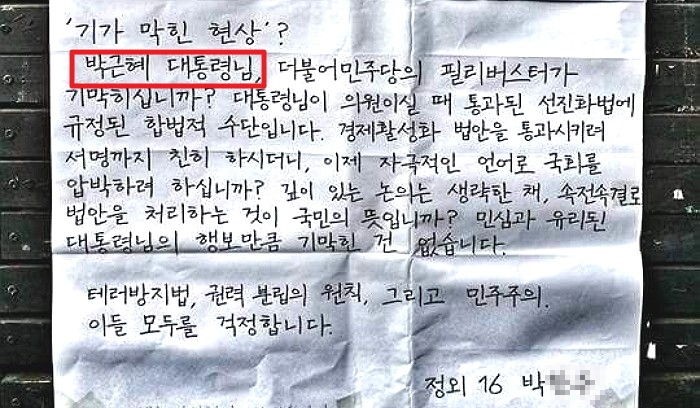 '기가 막힌 현상'?
박근혜 대통령님, 더불어민주당의 필리버스터가
기막히십니까? 대통령님이 의원이실 때 통과된 선진화법에
규정된 합법적 수단입니다. 경제활성화 법안을 통과시키려
서명까지 친히 하시더니, 이제 자극적인 언어로 국회를
압박하려 하십니까? 깊이 있는 논의는 생략한 채, 속전속결로
법안을 처리하는 것이 국민의 뜻입니까? 민심과 유리된
대통령님의 행보만큼 기막힌 건 없습니다.
테러방지법, 권력 분립의 원칙, 그리고 민주주의.
이들 모두를 걱정합니다.
정외 16 박